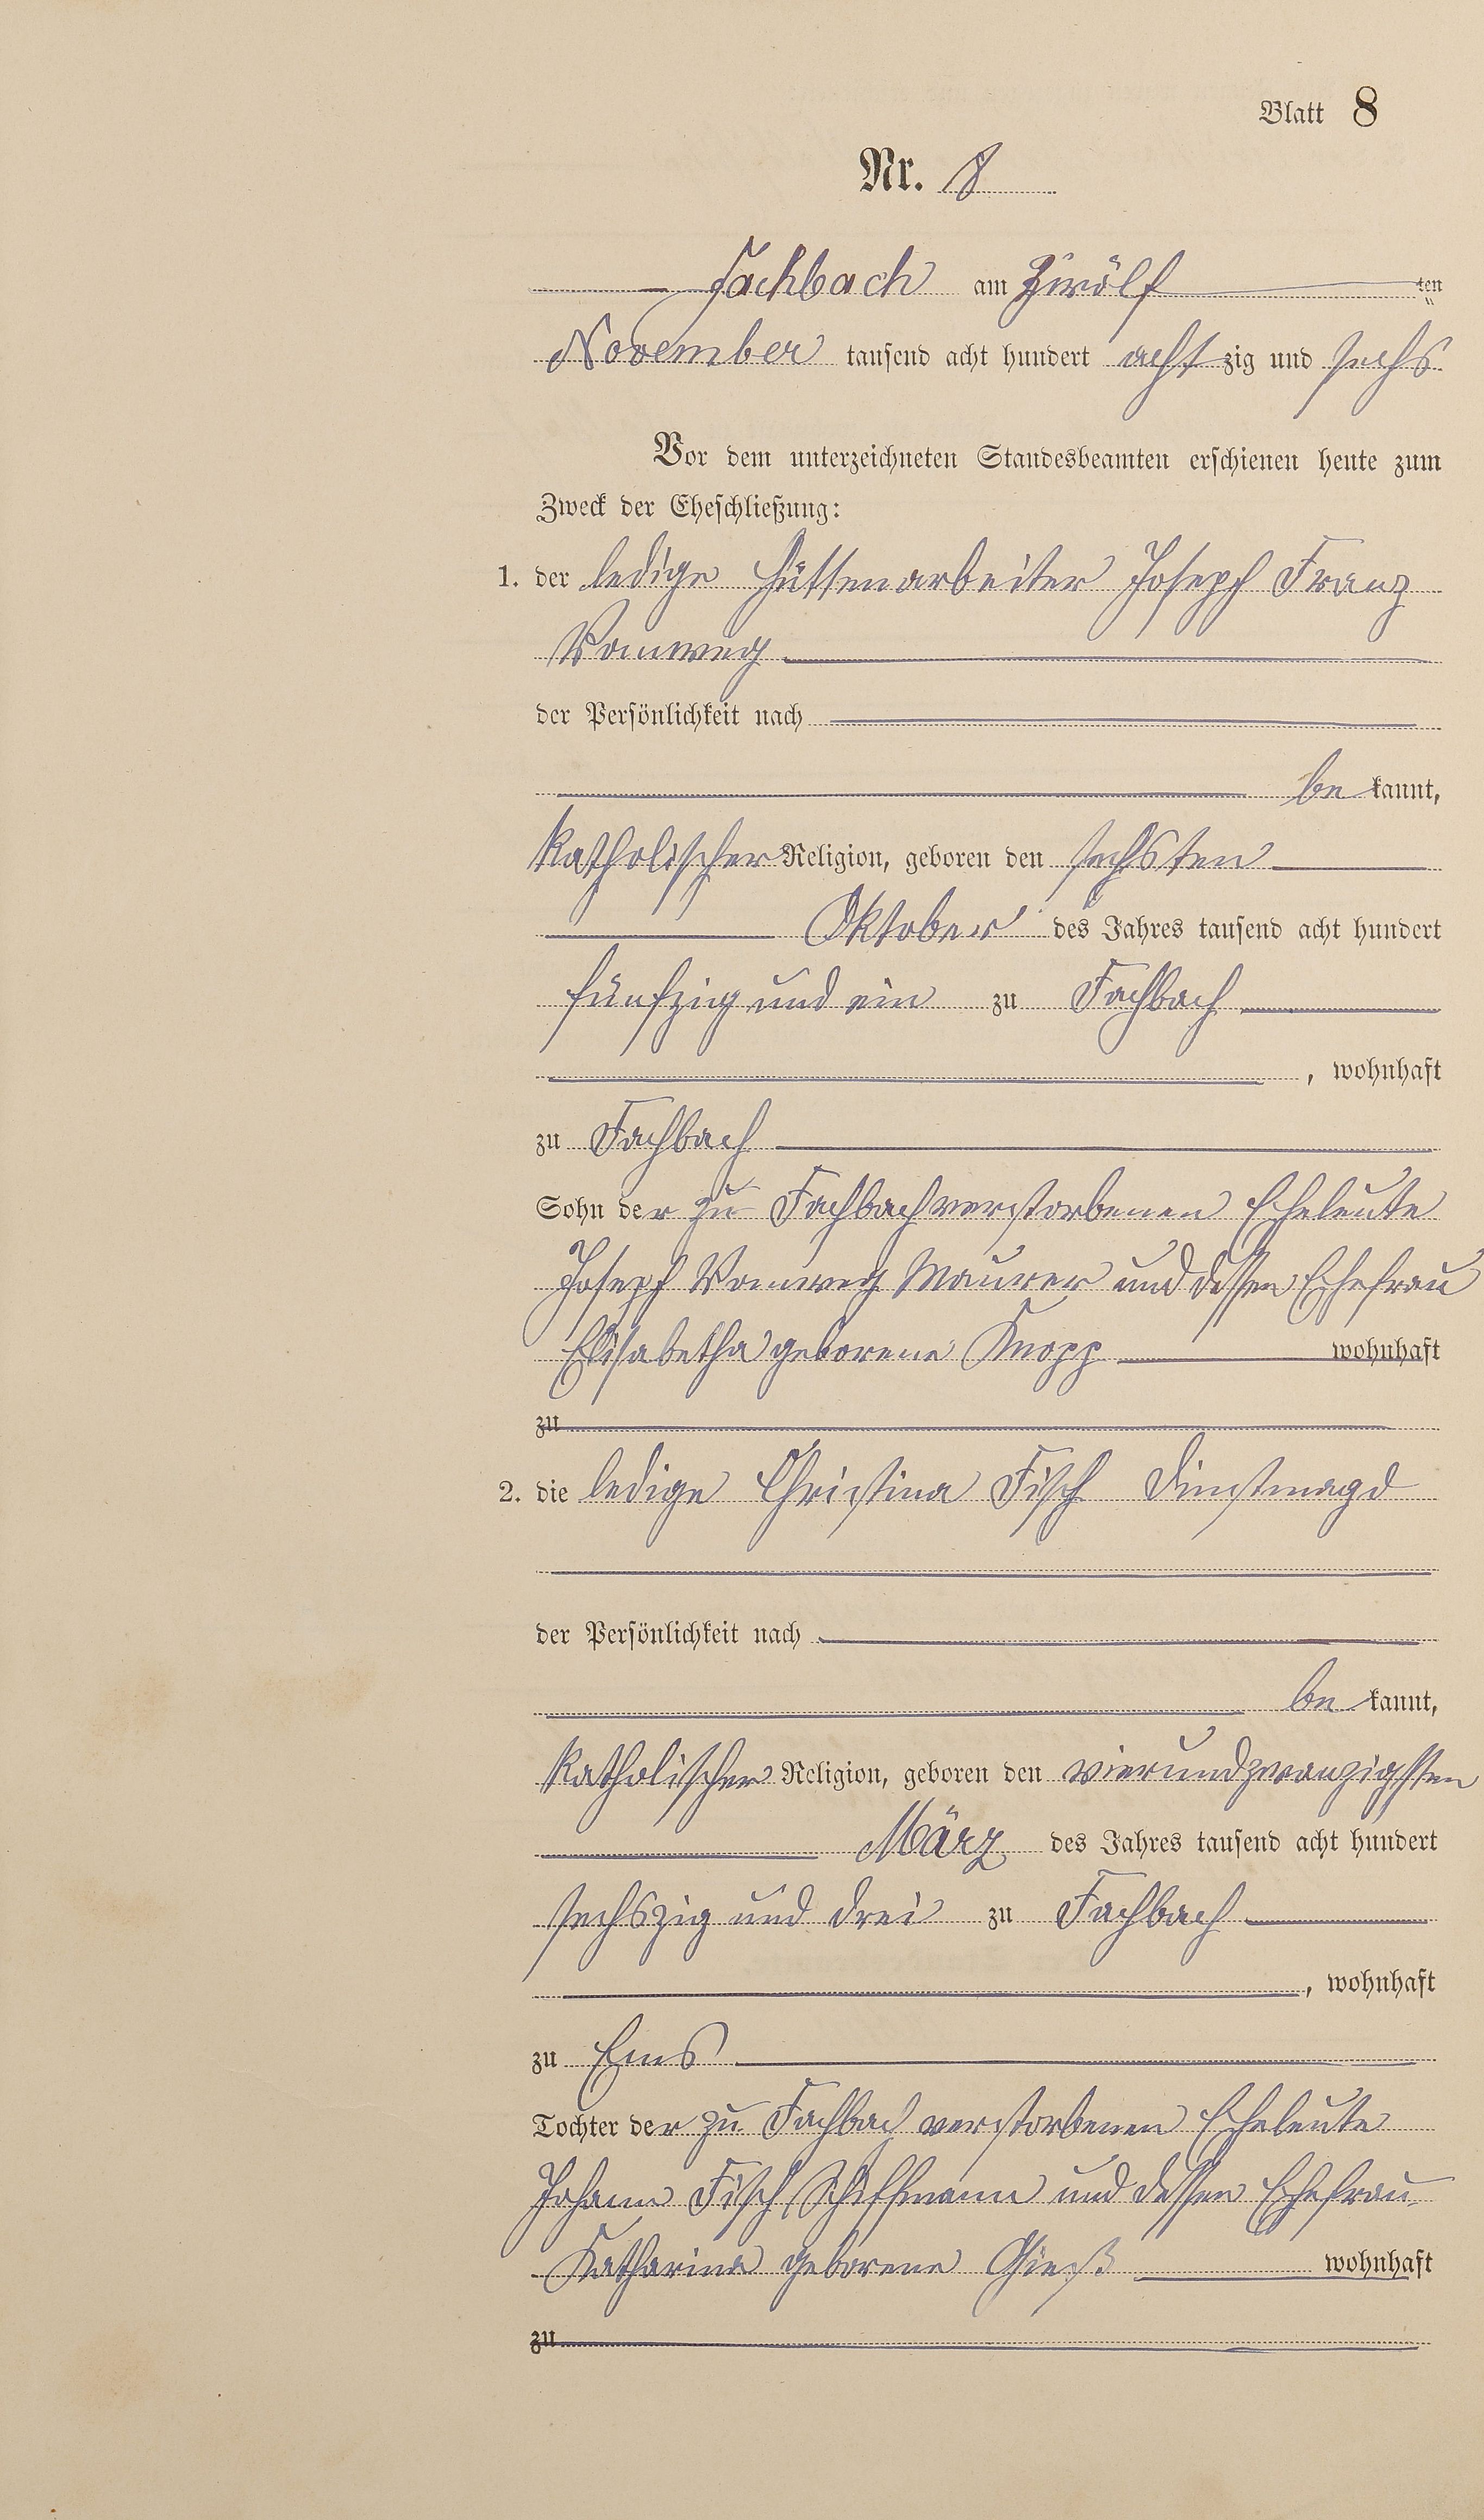 Blatt 8
Nr. 8
Fachbach am Zwölf ten
November tausend acht hundert acht zig und sechs
Vor dem unterzeichneten Standesbeamten erschienen heute zum
Zweck der Eheschließung:
1. der ledige Hüttenarbeiter Joseph Franz
Vomweg
der Persönlichkeit nach
be kannt,
katholischer Religion, geboren den sechsten
Oktober des Jahres tausend acht hundert
fünfzig und ein zu Fachbach
, wohnhaft
zu Fachbach
Sohn der zu Fachbach verstorbenen Eheleute
Joseph Vomweg Maurer und dessen Ehefrau
Elisabetha geborene Knopp wohnhaft
zu
2. die ledige Christina Fisch Dinstmagd
der Persönlichkeit nach
be kannt,
katholischer Religion, geboren den vierundzwanzigsten
März des Jahres tausend acht hundert
sechszig und drei zu Fachbach
, wohnhaft
zu Ems
Tochter der zu Fachbach verstorbenen Eheleute
Johann Fisch, Schiffmann und dessen Ehefrau
Katharina geborene wohnhaft
zu